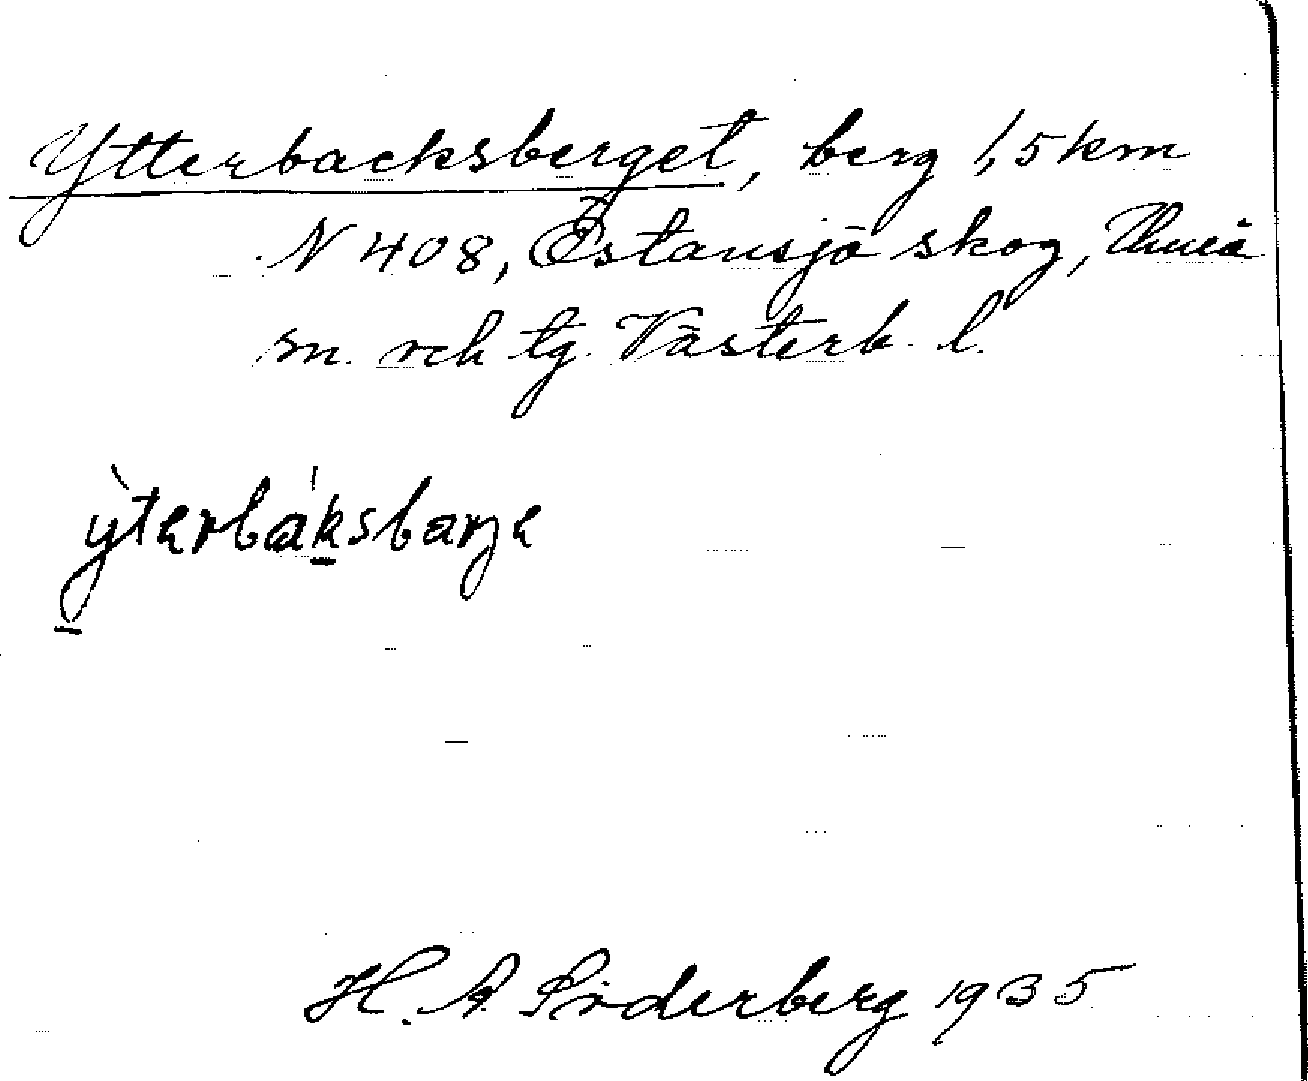 Ytterbacksberget, berg 1,5 km
N 408, Östansjö skog, Umeå
sn. och tg. Västerb. l.
ỳterbáksbarje
H. A. Söderberg 1935